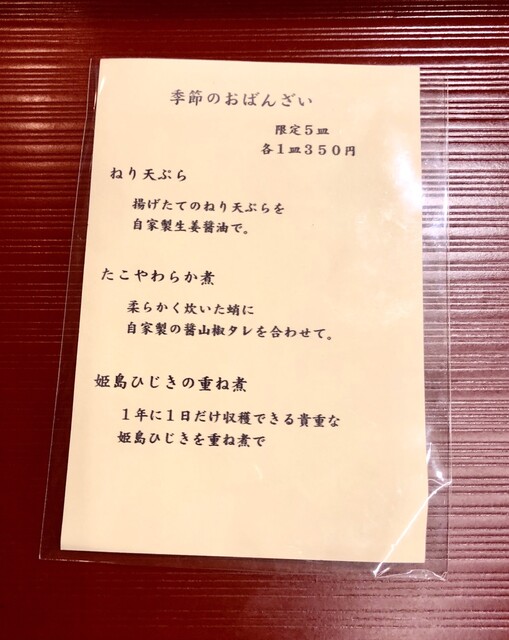 季節のおばんざい
限定5皿
各1皿350円
ねり天ぷら
揚げたてのねり天ぷらを
自家製生姜醤油で。
たこやわらか煮
柔らかく炊いた蛸に
自家製の醤山椒タレを合わせて。
姫島ひじきの重ね煮
1年に1日だけ収穫できる貴重な
姫島ひじきを重ね煮で